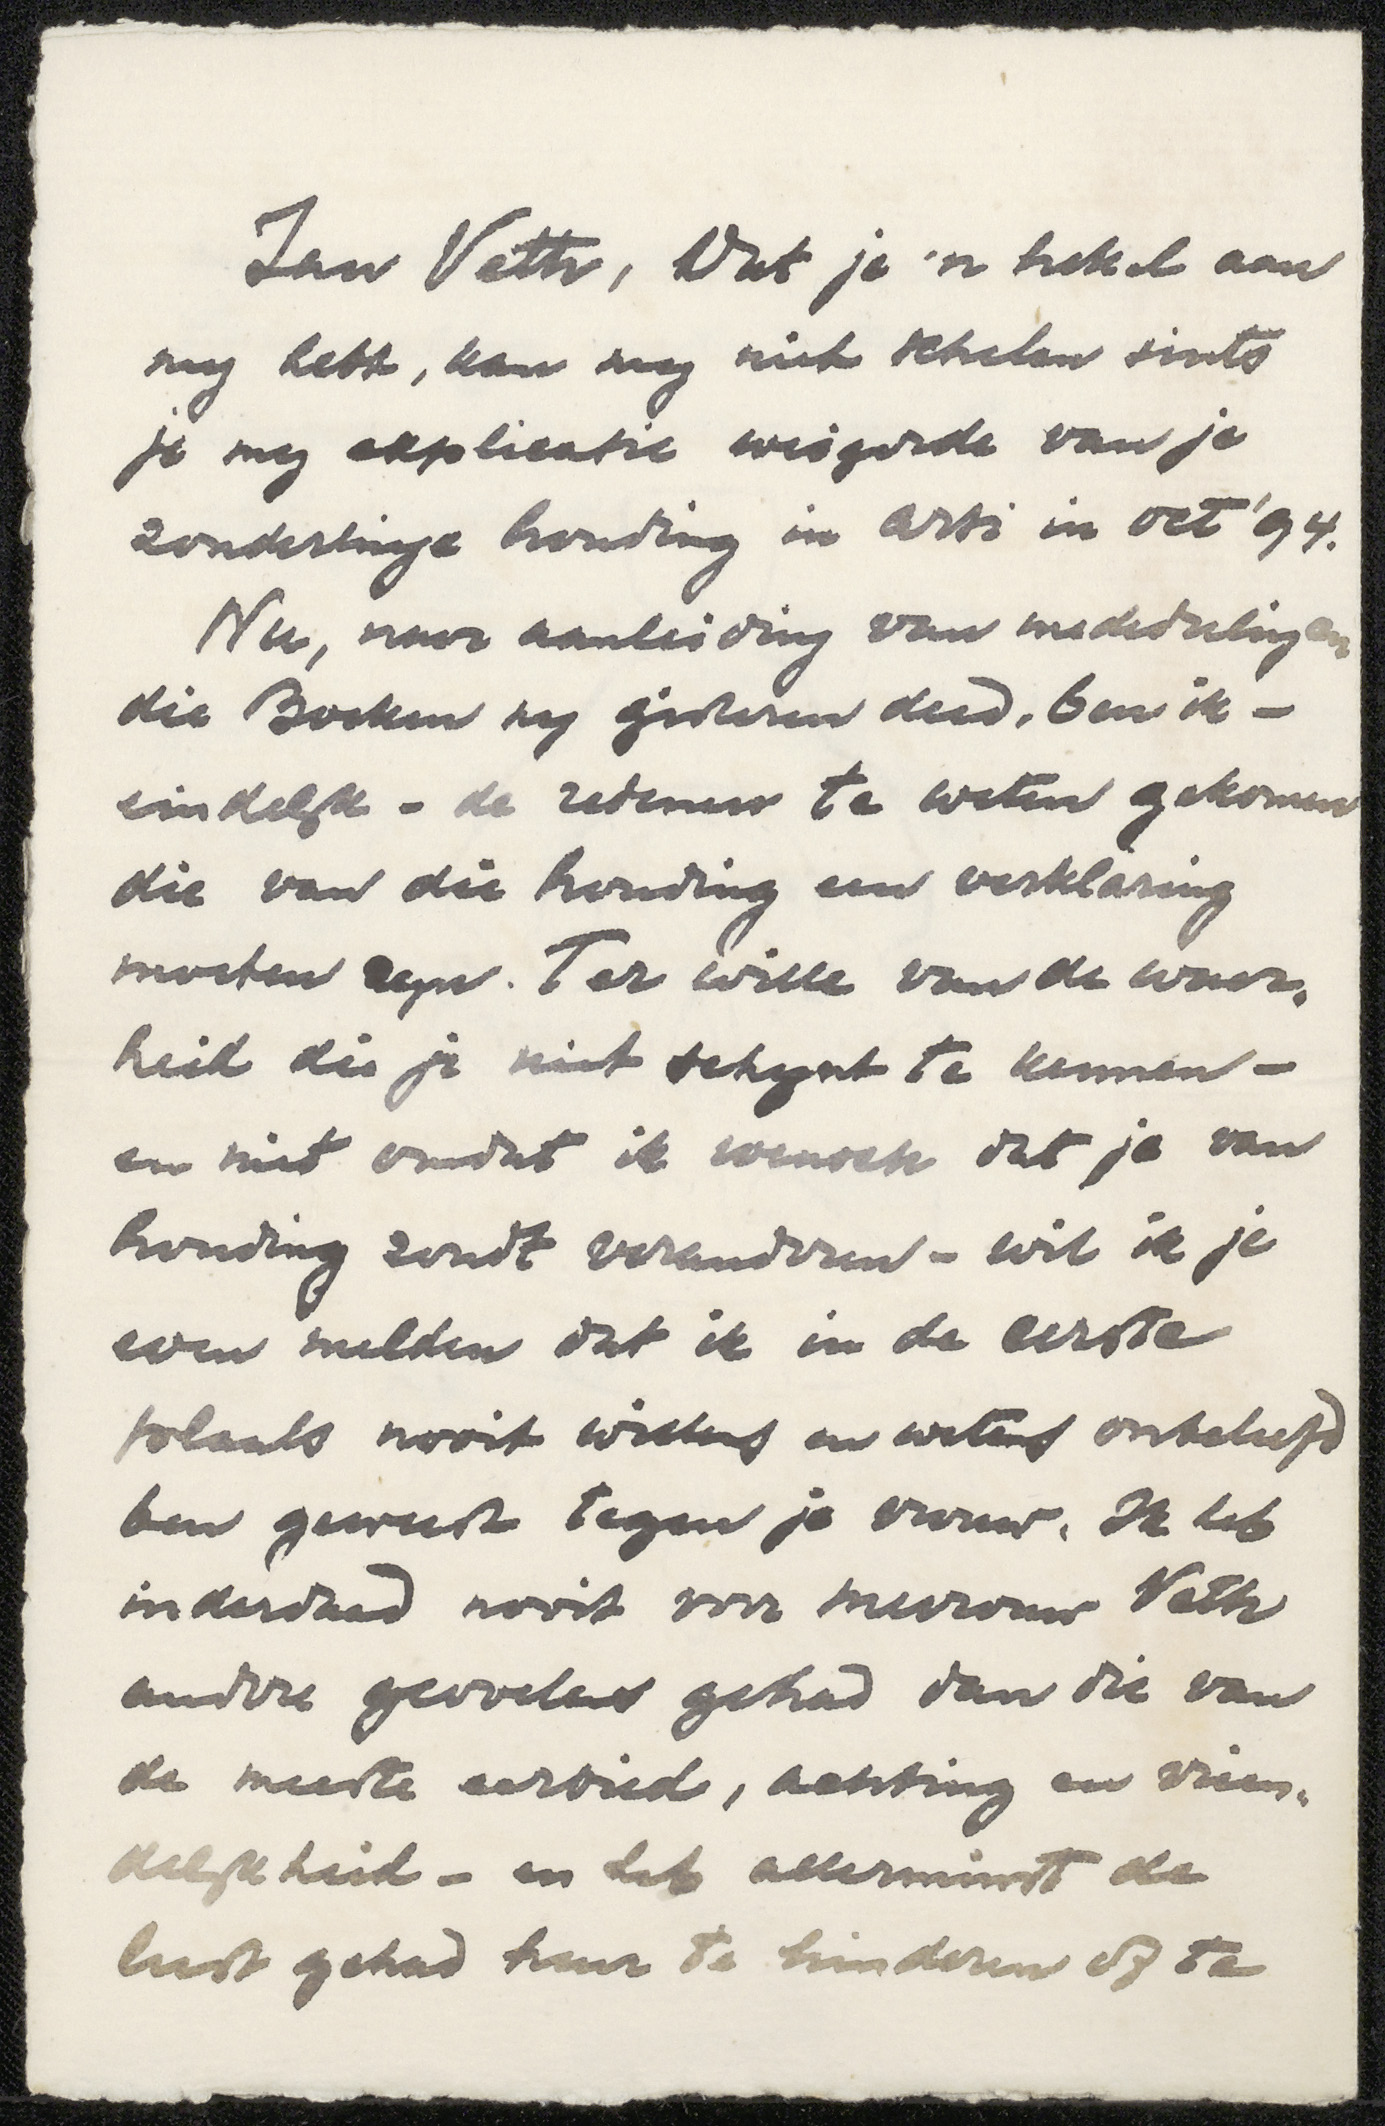 Jan Veth, Dat je 'n hekel aan
my hebt, kan my niet schelen sints
je my explicatie weigerde van je
zonderlinge houding in Arti in Oct '94.
Nu, naar aanleiding van mededeelingen
die Boeken my gisteren deed, ben ik -
eindelijk - de redenen te weten gekomen
die van die houding een verklaring
moeten zyn. Ter wille van de waar-
heid die je niet schynt te kennen -
en niet omdat ik wensch dat je van
houding zoudt veranderen - wil ik je
even melden dat ik in de eerste
plaats nooit willens en wetens onbeleefd
ben geweest tegen je vrouw. Ik heb
inderdaad nooit voor mevrouw Veth
andere gevoelens gehad dan die van
de meeste eerbied, achting en vrien-
delijkheid - en heb allerminst de
lust gehad haar te hinderen of te